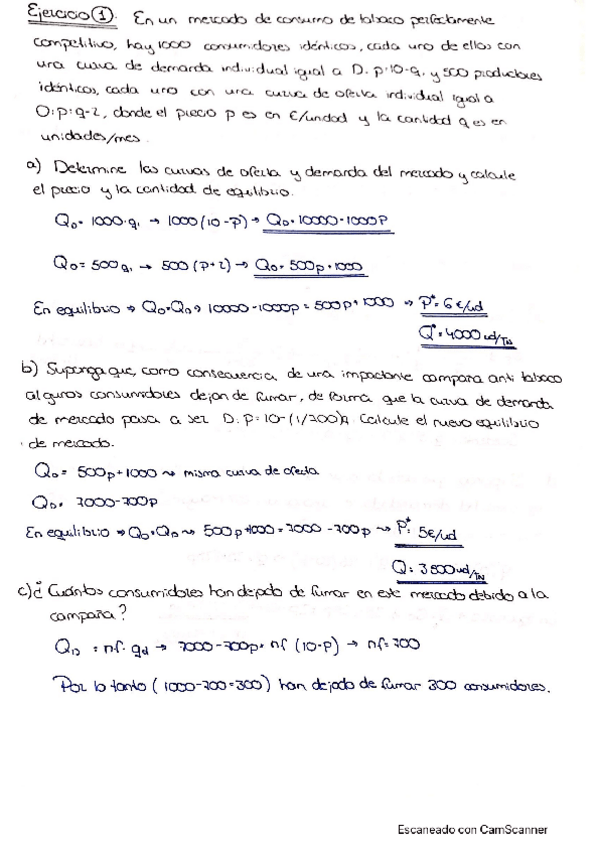 Ejercicio ①. En un mercado de consumo de tabaco perfectamente
competitivo, hay 1000 consumidores idénticos, cada uno de ellos con
una curva de demanda individual igual a D. p=10-q. y 500 productores
idénticos, cada uno con una curva de oferta individual igual a
O:p=q-2, donde el precio p es en €/unidad y la cantidad q es en
unidades/mes.
a) Determine las curvas de oferta y demanda del mercado y calcule
el precio y la cantidad de equilibrio.
QD = 1000·q. → 1000(10-P) → QD = 10000-1000P
QO = 500q. → 500(p+2) → QO = 500p+1000
En equilibrio → QO=QD → 10000-1000p = 500p+1000 → P*= 6€/ud
Q*= 4000ud/TM
b) Suponga que, como consecuencia de una impactante compaña anti tabaco
algunos consumidores dejan de fumar, de forma que la curva de demanda
de mercado pasa a ser D. p=10-(1/700)Q. Calcule el nuevo equilibrio
de mercado.
QO = 500p+1000 ~ misma curva de oferta
QD = 7000-700p
En equilibrio → QO=QD ~ 500p+1000=7000-700p ~ P*= 5€/ud
Q= 3500ud/TM
c) ¿Cuántos consumidores han dejado de fumar en este mercado debido a la
campaña?
QD = nf·qd → 7000-700p= nf (10-P) → nf=700
Por lo tanto (1000-700=300) han dejado de fumar 300 consumidores.
Escaneado con CamScanner